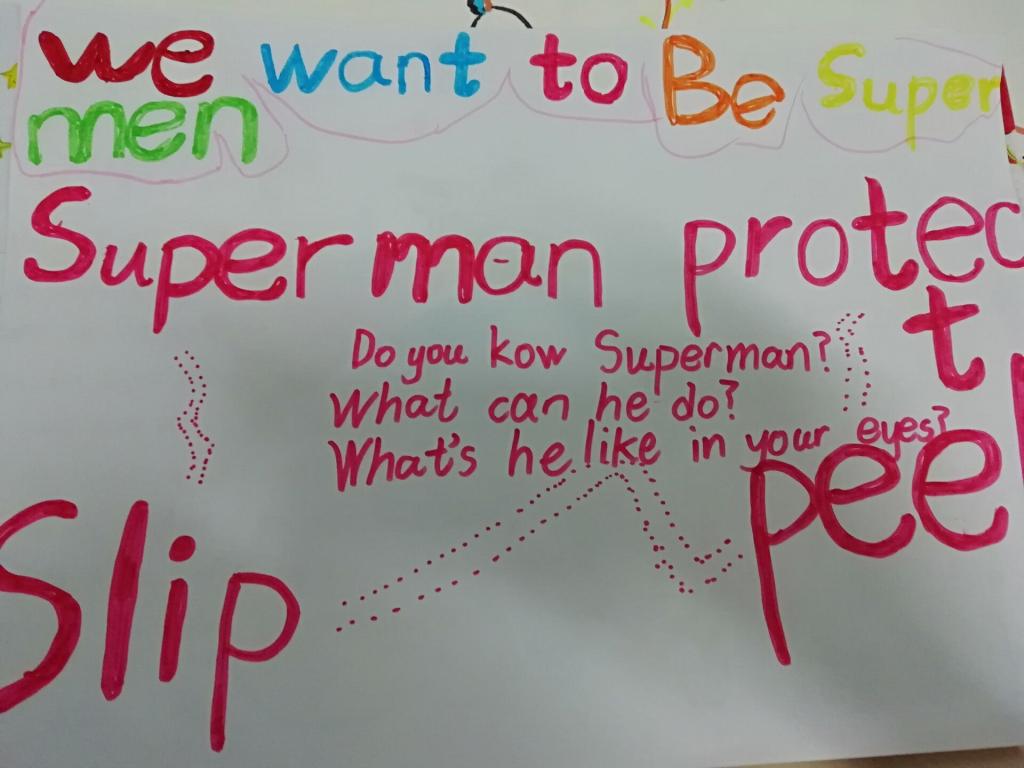 we want to Be Super
men
Superman protec
t
Do you kow Superman?
What can he do?
What's he like in your eyes?
Slip
pee